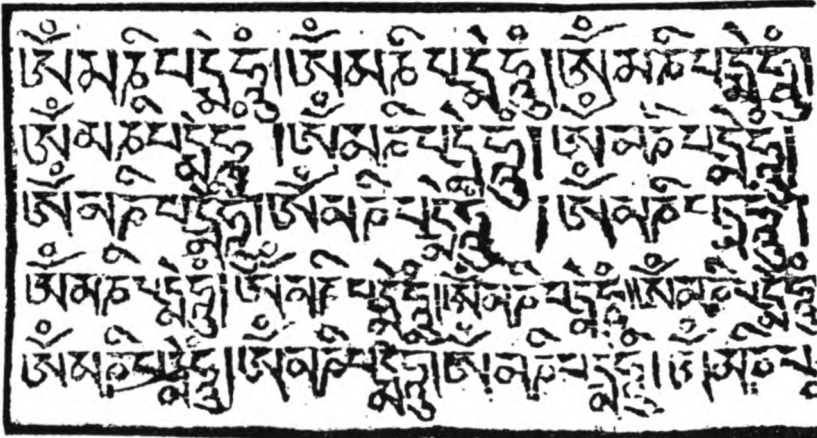 ཨོཾ་མ་ཎི་པདྨེ་ཧཱུྃ། ཨོཾ་མ་ཎི་པདྨེ་ཧཱུྃ། ཨོཾ་མ་ཎི་པདྨེ་ཧཱུྃ།
ཨོཾ་མ་ཎི་པདྨེ་ཧཱུྃ། ཨོཾ་མ་ཎི་པདྨེ་ཧཱུྃ། ཨོཾ་མ་ཎི་པདྨེ་ཧཱུྃ།
ཨོཾ་མ་ཎི་པདྨེ་ཧཱུྃ། ཨོཾ་མ་ཎི་པདྨེ་ཧཱུྃ། ཨོཾ་མ་ཎི་པདྨེ་ཧཱུྃ།
ཨོཾ་མ་ཎི་པདྨེ་ཧཱུྃ། ཨོཾ་མ་ཎི་པདྨེ་ཧཱུྃ། ཨོཾ་མ་ཎི་པདྨེ་ཧཱུྃ། ཨོཾ་མ་ཎི་པདྨེ་ཧཱུྃ
ཨོཾ་མ་ཎི་པདྨེ་ཧཱུྃ། ཨོཾ་མ་ཎི་པདྨེ་ཧཱུྃ། ཨོཾ་མ་ཎི་པདྨེ་ཧཱུྃ། ཨོཾ་མ་ཎི་